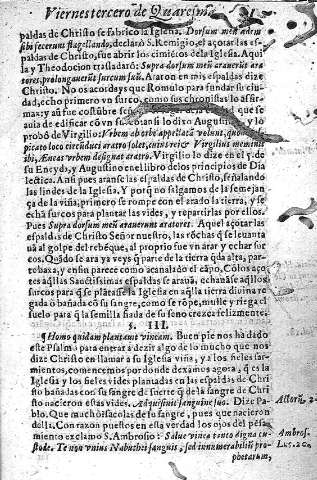 Viernes tercero de Quaresma
paldas de Christo se fabrico la Iglesia. Dorsum meũ adem
sibi fecerunt flagellando, declarò S. Remigio, el açotar las es-
paldas de Christo, fue abrir los cimiẽtos de la Iglesia. Aqui
la y Theodocion trasladarõ: Supra dorsum meũ arauerũt ara
tores, prolongauerũt surcum suũ. Araron en mis espaldas dize
Christo. No os acordays que Romulo para fundar su ciu-
dad, echo primero vn surco, como sus chronistas lo affir-
max; y aũ fue costũbre que se
auia de edificar cõ vn si lo dixo Augustino, y lo
probò de Virgilio: Vrbem ab orbe appellatã volunt, quod
picato loco circũduci aratro solet, cuius rei & Virgilius meminit
ibi, Aeneas vrbem designat aratro. Virgilio lo dize en el 5. de
su Eneydo, y Augustino en el libro de los principios de Dia
lectica. Ansi pues aranse las espaldas de Christo, señalando
las lindes de la Iglesia. Y porq̃ no salgamos de la semejan-
ça de la viña, primero se rompe con el arado la tierra, y se
echã surcos para plantar las vides, y repartirlas por ellos.
Pues Supra dorsum meũ arauerunt aratores. Aquel açotar las
espaldas de Christo Señor nuestro, las rõchas q̃ se leuanta
uã al golpe del rebẽque, al proprio fue vn arar y echar sur
cos. Quãdo se ara ya veys q̃ parte de la tierra q̃da alta, par-
te baxa, y en fin parece como acanalado el cãpo, Cõ los aço
tes aq̃llas Sanctissimas espaldas se arauã, echauãse aq̃llos
surcos para q̃ se plantasse la Iglesia en aq̃lla tierra diuina re-
gada ò bañada cõ su sangre, como se rõpe, mulle y riega el
suelo para q̃ la semilla ñada de su seno crezca felizmente.
§. III.
¶ Homo quidam plantauit vineam. Buen pie nos ha dado
este Psalmo para entrar a dezir algo de lo mucho que nos
dize Christo en llamar a su Iglesia viña, y a los fieles sar-
mientos, comencemos por donde dexamos agora, q̃ es la
Iglesia y los fieles vides plantadas en las espaldas de Chri
sto bañadas con su sangre de suerte q̃ de la sangre de Chri
sto nacieron estas vides. Adquisiuit sanguine suo. Dize Pa-
blo. Que mucho si acolas de su sangre, pues que nacieron
della. Con razon puestos en esta verdad los ojos del pas-
miento exclamo S. Ambrosio: Salue vinea tanto digna cu-
stode. Te non vnius Nabuthis sanguis, sed innumerabiliũ pro
phetarum,
Actorũ. 2
Ambros.
Luc. 20.